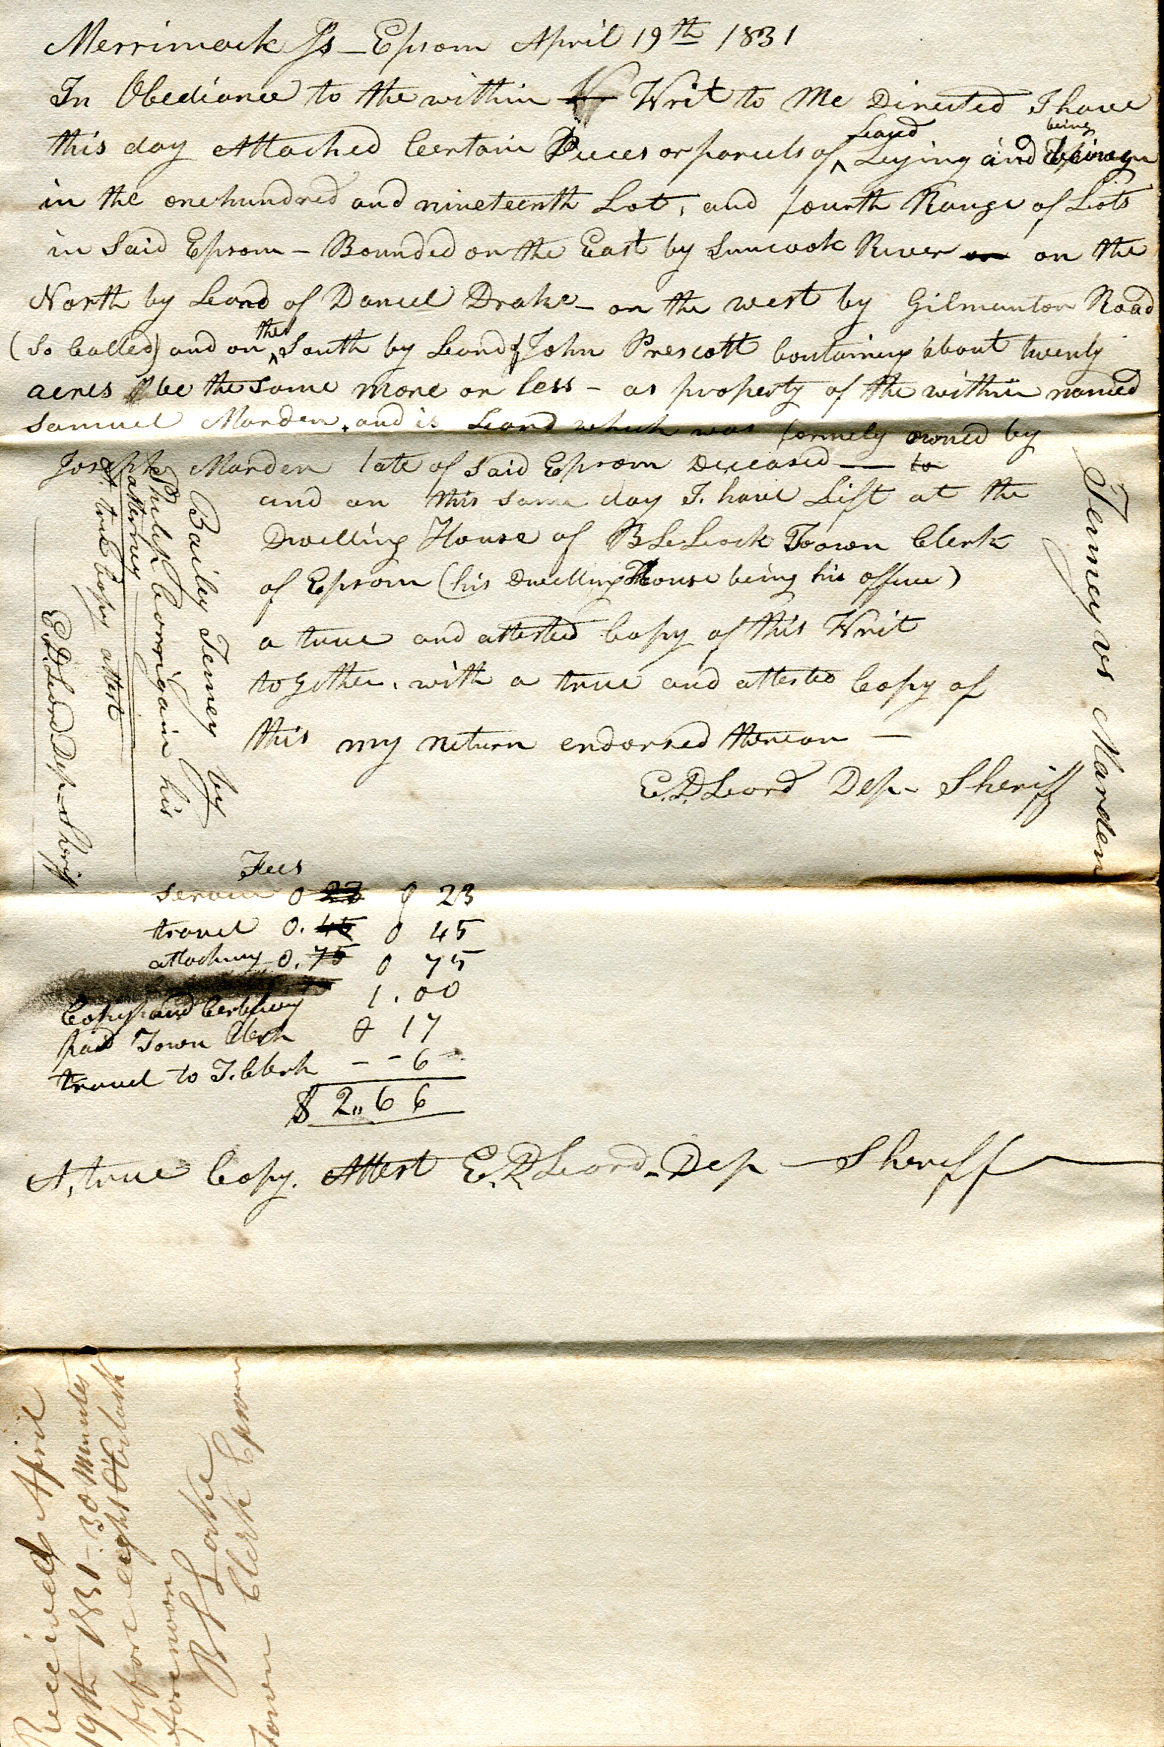 Merrimack Ss – Epsom April 19th 1831
In Obediance to the within Writ to Me Directed I have
this day Attached Certain Pieces or parcels of Land Leying and being
in the one hundred and nineteenth Lot, and fourth Range of Lots
in Said Epsom – Bounded on the East by Suncook River on on the
North by Land of Daniel Drake – on the west by Gilmanton Road
(So Called) and on the South by Land of John Prescott Containing about twenty
acres be the same more or less – as property of the within named
Samuel Marden, and is Land which was formely owned by
Joseph Marden late of Said Epsom Deceased — to
and on this same day I have Lift at the
Dwelling House of Town Clerk
of Epsom (his Dwelling House being his office)
a true and attested Copy of this Writ
to gether with a true and attested Copy of
this my return endorsed thereon —
E.D. Leord Dep – Sheriff
Bailey Tenney by
Philip Corrigain his
attorney
A true Copy attest
E.D. Leord Dep – Sheriff
Tenney vs Marden
Fees
Service 0 23 0 23
travel 0. 45 0 45
attaching – 0. 75 0 75
Copy and 1.00
paid Town Clerk 0 17
travel to T. Clerk – – 6
$ 2,, 6 6
A, true Copy. Attest E.D. Leord – Dep — Sheriff
Received April
19th 1831 – 30 Minutes
before eight Oclock
forenoon
B L Locke
Town Clerk Epsom